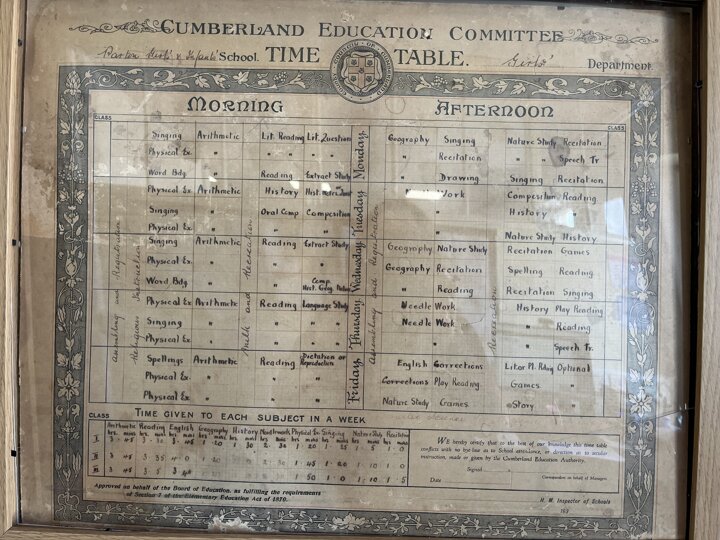 CUMBERLAND EDUCATION COMMITTEE
School. TIME TABLE. Girls' Department.
MORNING AFTERNOON
CLASS CLASS
Assembling and Registration
Religious Instruction
Milk and Recreation
Assembling and Registration
Recreation
Monday
Singing Arithmetic Lit. Reading Lit. Question Geography Singing Nature Study Recitation
Physical Ex. " " " " " " Recitation " " Speech Tr.
Word Bdg. " Reading Extract Study " Drawing Singing Recitation
Tuesday
Physical Ex. Arithmetic History Hist. Work Composition Reading
Singing " Oral Comp Composition " History "
Physical Ex. " " " " Nature Study History
Wednesday
Singing Arithmetic Reading Extract Study Geography Nature Study Recitation Games
Physical Ex. " " " Geography Recitation Spelling Reading
Word Bdg. " " Comp. Hist. Geog. " Reading Recitation Singing
Thursday
Physical Ex. Arithmetic Reading Language Study Needle Work History Play Reading
Singing " " " Needle Work " Reading
Physical Ex. " " " " " Speech Tr.
Friday
Spellings Arithmetic Reading Dictation or Reproduction English Corrections Optional
Physical Ex. " " " Corrections Play Reading Games "
Physical Ex. " " " Nature Study Games Story "
CLASS TIME GIVEN TO EACH SUBJECT IN A WEEK
Arithmetic Reading English Geography History Needlework Physical Ex. Singing Nature Study Recitation
hrs. mins hrs. mins hrs. mins hrs. mins hrs. mins hrs. mins hrs. mins hrs. mins hrs. mins hrs. mins
I
II 3 45 3 35 1 45 1 20 1 10 1 0
III 3 45 3 5 1 0 1 10 1 5
WE hereby certify that to the best of our knowledge this time table
conflicts with no bye-law as to School attendance, or direction as to secular
instruction, made or given by the Cumberland Education Authority.
Signed
Correspondent on behalf of Managers.
Date
H. M. Inspector of Schools
193
Approved on behalf of the Board of Education, as fulfilling the requirements
of Section 7 of the Elementary Education Act of 1870.